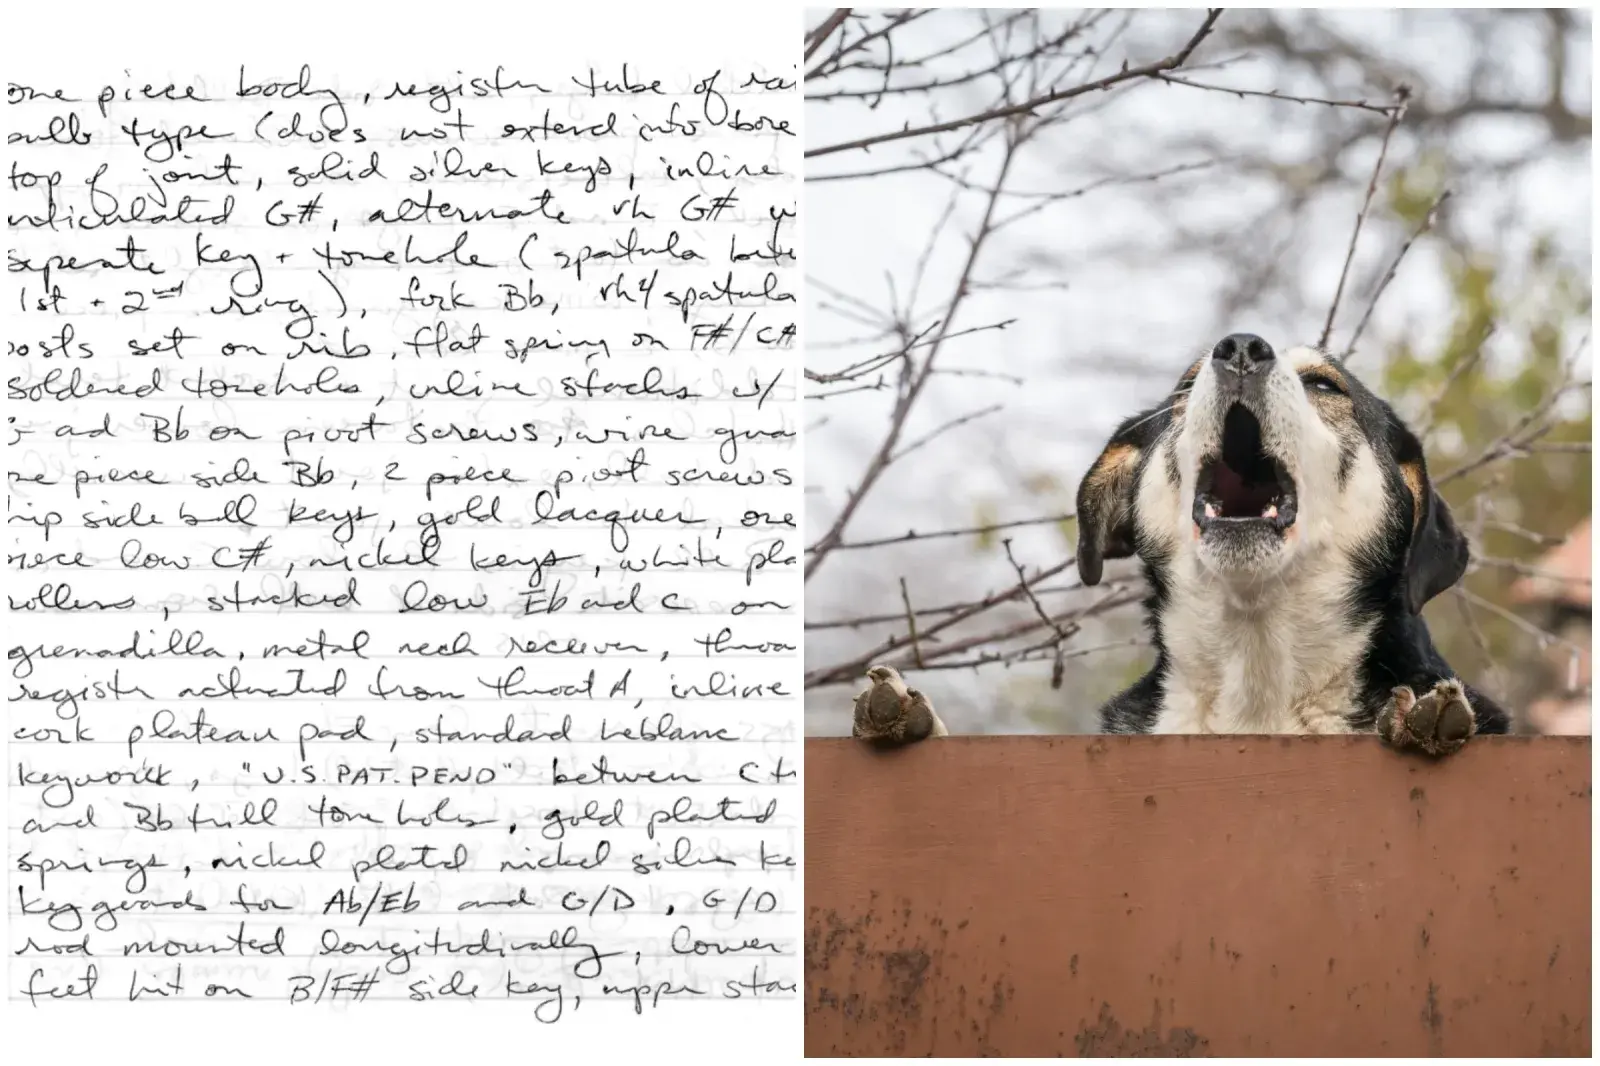 one piece body, register tube of
type (does not extend into bore
top of joint, solid silver keys, inline
articulated G#, alternate rh G#
seperate key + tonehole (spatula
1st + 2nd ring), fork Bb, rh4 spatula
posts set on rib, flat spring on F#/C#
soldered toneholes, inline stacks w/
ad Bb on pivot screws, wire
piece side Bb, 2 piece pivot screws
side bell keys, gold lacquer, one
piece low C#, nickel keys, white
rollers, stacked low Eb ad C on
grenadilla, metal neck receiver,
register actuated from throat A, inline
cork plateau pad, standard Leblanc
keywork, "U.S. PAT. PEND" between C
and Bb trill tone holes, gold plated
springs, nickel plated nickel silver
key guards for Ab/Eb and G/D, G/D
rod mounted longitudinally, lower
feet hit on B/F# side key, upper